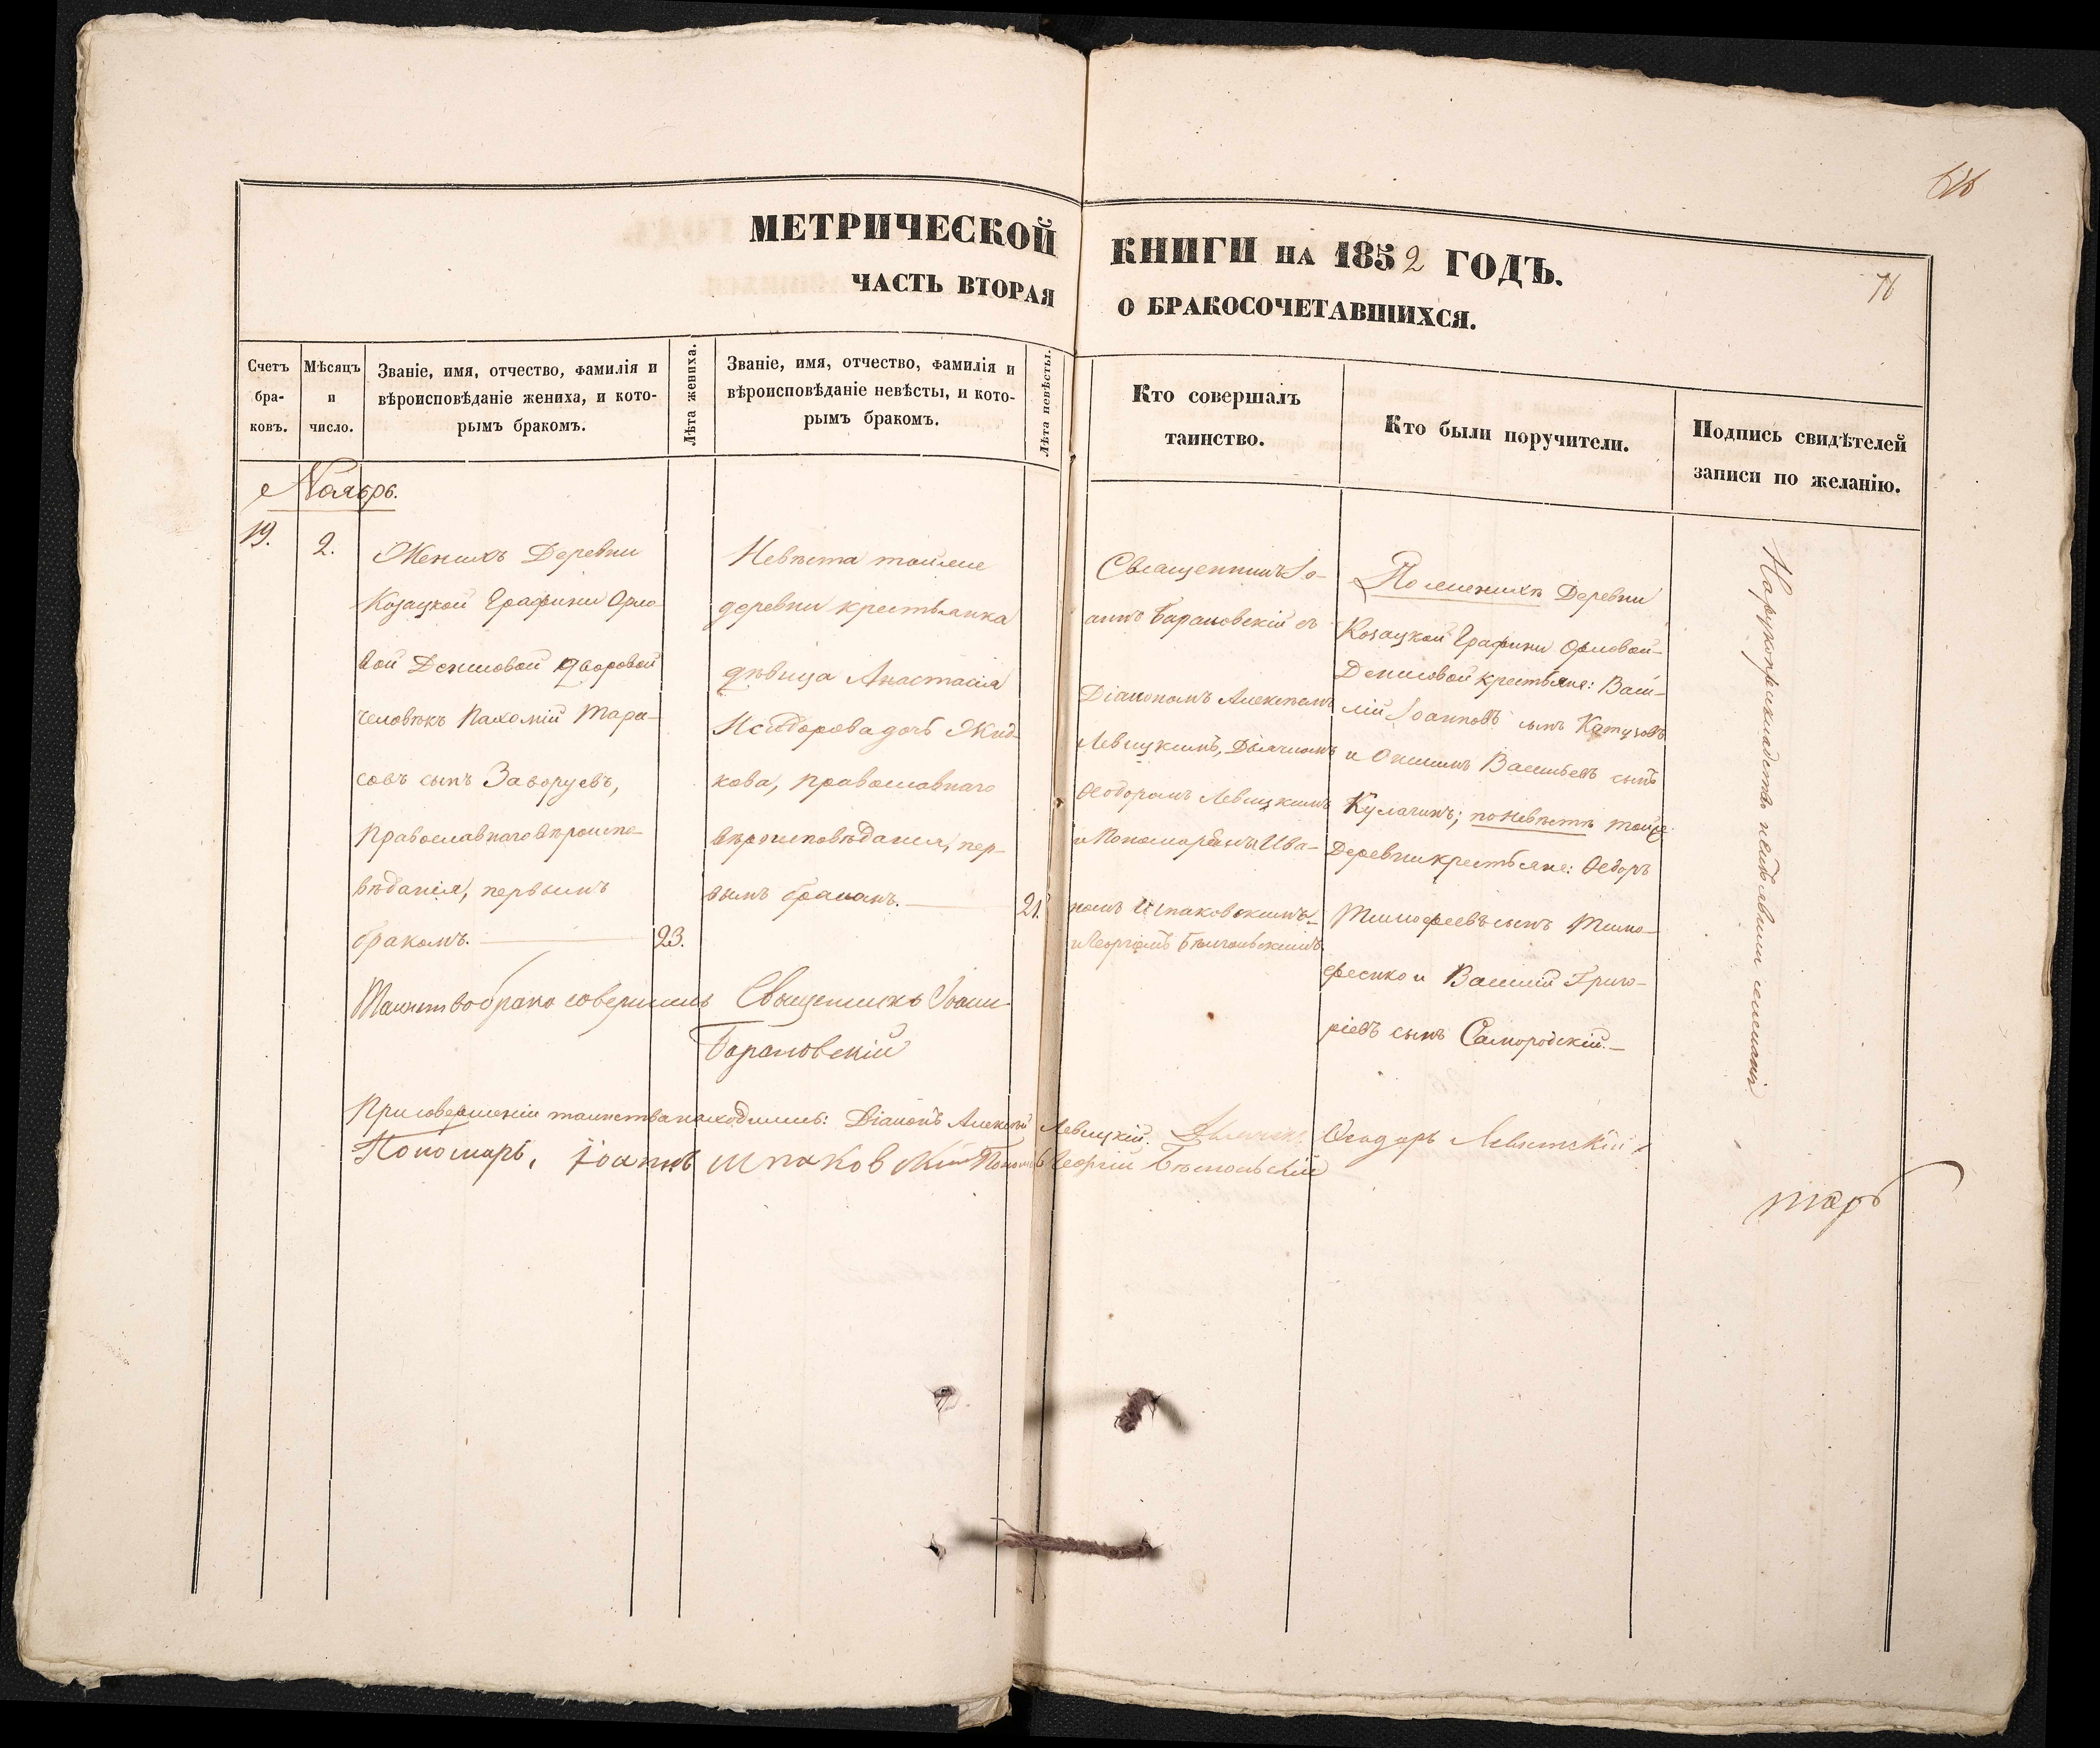 МЕТРИЧЕСКОЙ КНИГИ НА 1852 ГОДЪ.
ЧАСТЬ ВТОРАЯ О БРАКОСОЧЕТАВШИХСЯ.
76
Счетъ
бра-
ковъ.
Мѣсяцъ
и
число.
Званіе, имя, отчество, фамилія и
вѣроисповѣданіе жениха, и кото-
рымъ бракомъ.
Лѣта жениха.
Званіе, имя, отчество, фамилія и
вѣроисповѣданіе невѣсты, и кото-
рымъ бракомъ.
Лѣта невѣсты.
Кто совершалъ
таинство.
Кто были поручители.
Подпись свидѣтелей
записи по желанію.
Ноябрь.
19.
2.
Женихъ Деревни
Козацкой Графини Орло-
вой Денисовой дворовой
человѣкъ Пахомій Тара-
совъ сынъ Заворуевъ,
Православнаго вѣроиспо-
вѣданія, первымъ
бракомъ.
23.
Невѣста тойже
деревни крестьянка
дѣвица Анастасія
Исидорова дочь Жид-
кова, православнаго
вѣроисповѣданія, пер-
вымъ бракомъ.
21.
Священникъ Іо-
аннъ Барановскій съ
Діакономъ Алексѣемъ
Левицкимъ, Дьячкомъ
Ѳеодоромъ Левицкимъ
и Пономарями Ива-
номъ Шпаковскимъ
и Георгіемъ
По женихѣ Деревни
Козацкой Графини Орловой-
Денисовой крестьяне: Васи-
лій Іоанновъ сынъ Катусовъ
и Онисимъ Васильевъ сынъ
Кулачинъ; по невѣстѣ тойже
Деревни крестьяне: Ѳедоръ
Тимофеевъ сынъ Тимо-
фѣенко и Василій Григо-
ріевъ сынъ Самородскій.
Таинство брака совершилъ Священникъ Іоаннъ
Барановскій
При совершеніи таинства находились: Діаконъ Алексѣй Левицкій. Дьячекъ Ѳеодоръ Левитскій
Пономарь, Іоаннъ Шпаковскій Пономарь Георгій
тарь